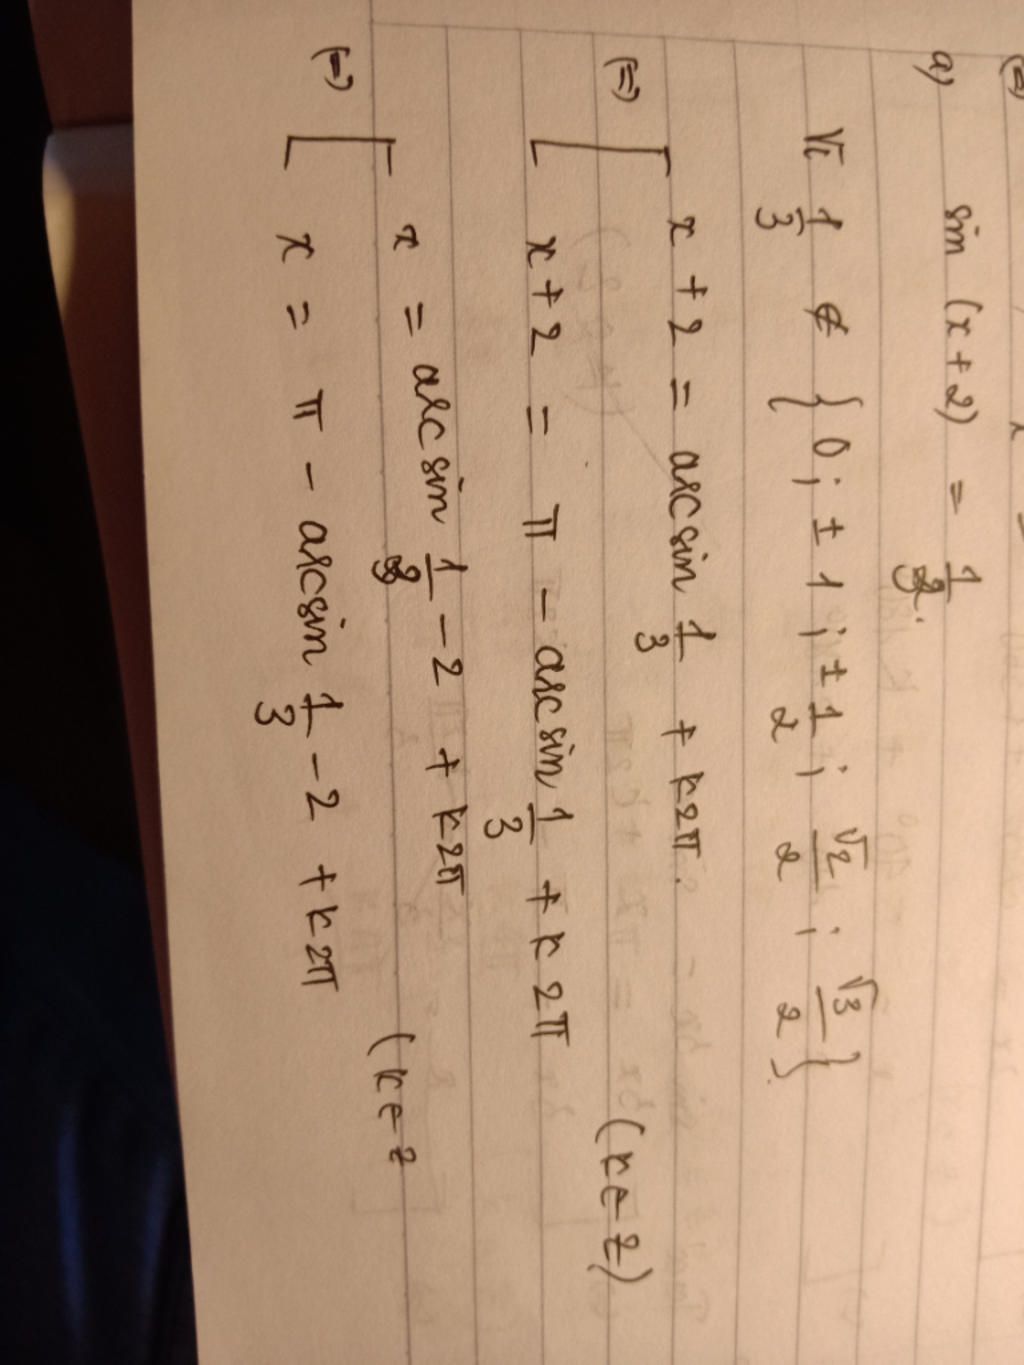 a) sin (x + 2) = 1/3.
Vì 1/3 ∉ { 0 ; ± 1 ; ± 1/2 ; √2/2 ; √3/2 }
(=) [ x + 2 = arcsin 1/3 + k2π.
x + 2 = π - arcsin 1/3 + k2π (k ∈ Z)
(=) [ x = arcsin 1/3 - 2 + k2π
x = π - arcsin 1/3 - 2 + k2π (k ∈ Z